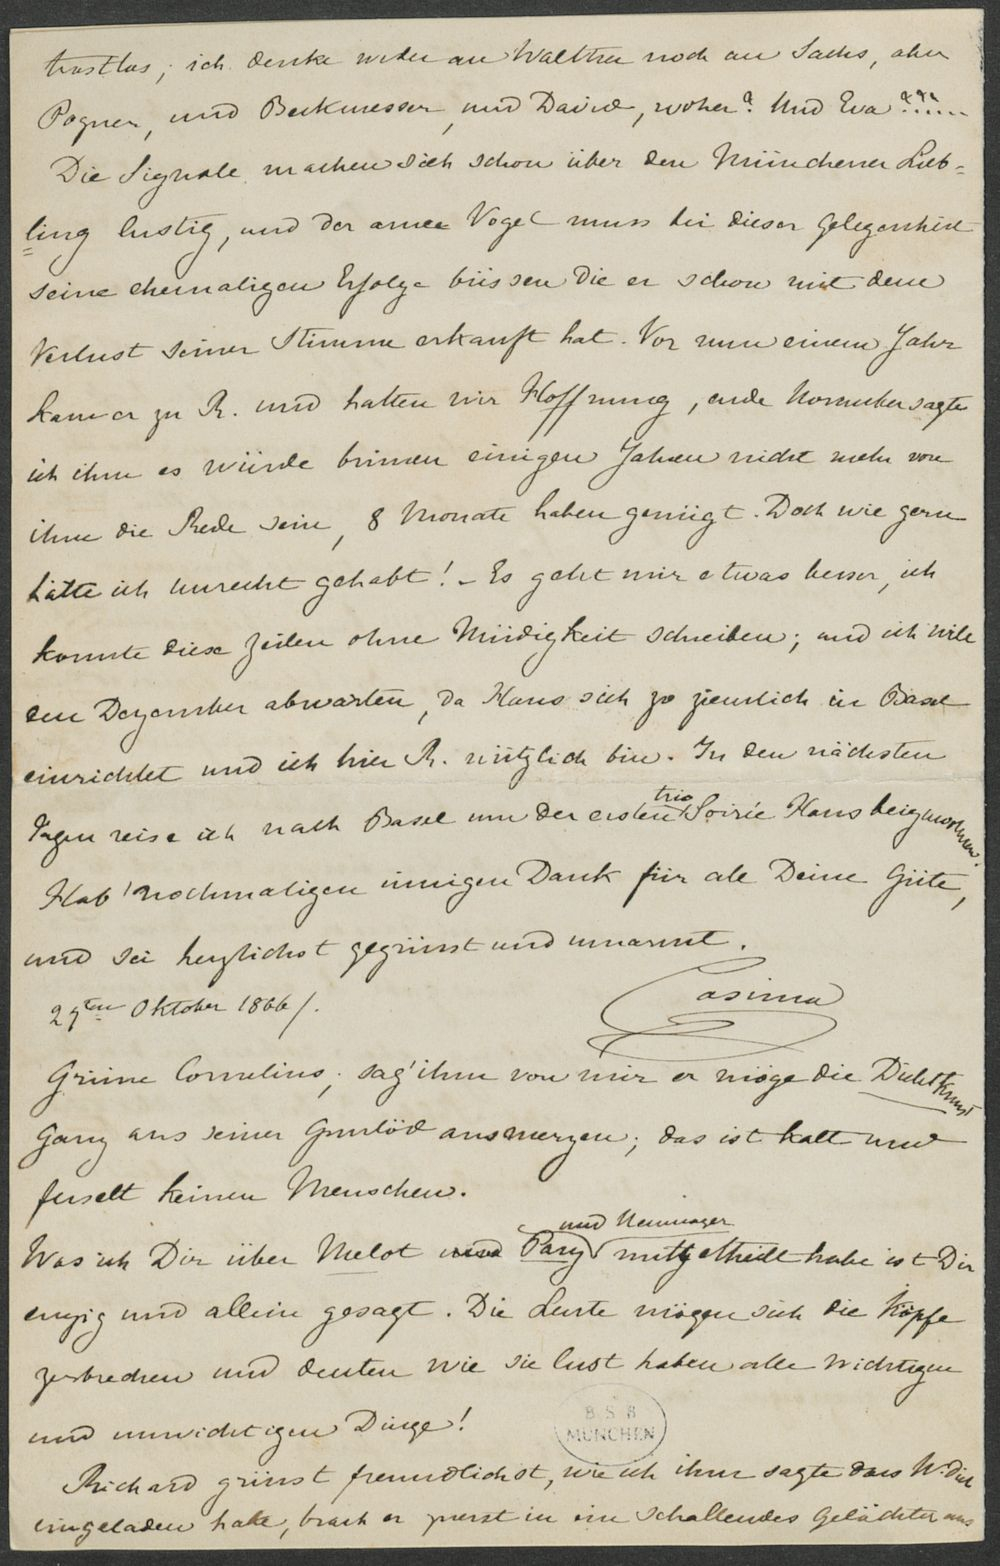 trostlos; ich denke weder an Walther noch an Sachs, aber
Pogner, und Beckmesser, und David, woher? Und Eva???....
Die Signale machen sich schon über den Münchener Lieb-
ling lustig, und der arme Vogel muss bei dieser Gelegenheit
seine ehemaligen Erfolge büssen die er schon mit dem
Verlust seiner Stimme erkauft hat. Vor nun einem Jahr
kam er zu R. und hatten wir Hoffnung, ende November sagte
ich ihm es würde binnen einigen Jahren nicht mehr von
ihm die Rede sein, 8 Monate haben genügt. Doch wie gern
hätte ich unrecht gehabt! – Es geht mir etwas besser, ich
konnte diese Zeilen ohne Müdigkeit schreiben; und ich will
den Dezember abwarten, da Hans sich so ziemlich in Basel
einrichtet und ich hier R. nützlich bin. In den nächsten
Tagen reise ich nach Basel um der ersten trio Soirée Hans beizuwohnen.
Hab' nochmaligen innigen Dank für alle Deine Güte,
und sei herzlichst gegrüsst und umarmt.
Cosima
29ten Oktober 1866/.
Grüsse Cornelius; sag' ihm von mir er möge die Dichtkunst
ganz aus seiner Gunlöd ausmerzen; das ist kalt und
fesselt keinen Menschen.
Was ich Dir über Melot und Parz und Neuwager mitgetheilt habe ist Dir
einzig und allein gesagt. Die Leute mögen sich die Köpfe
zerbrechen und deuten wie sie lust haben alle wichtigen
und unwichtigen Dinge!
BSB
MÜNCHEN
Richard grüsst freundlichst, wie ich ihm sagte dass W. Dich
eingeladen habe, brach er zuerst in ein schallendes Gelächter aus